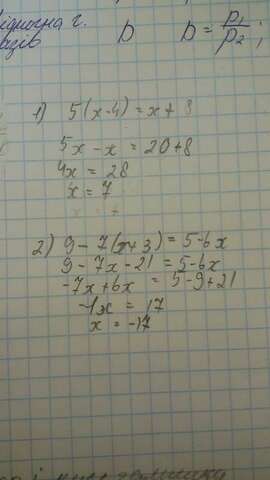 D D = p1/p2;
1) 5(x-4)=x+8
5x-x=20+8
4x=28
x=7
2) 9-7(x+3)=5-6x
9-7x-21=5-6x
-7x+6x=5-9+21
-1x=17
x=-17